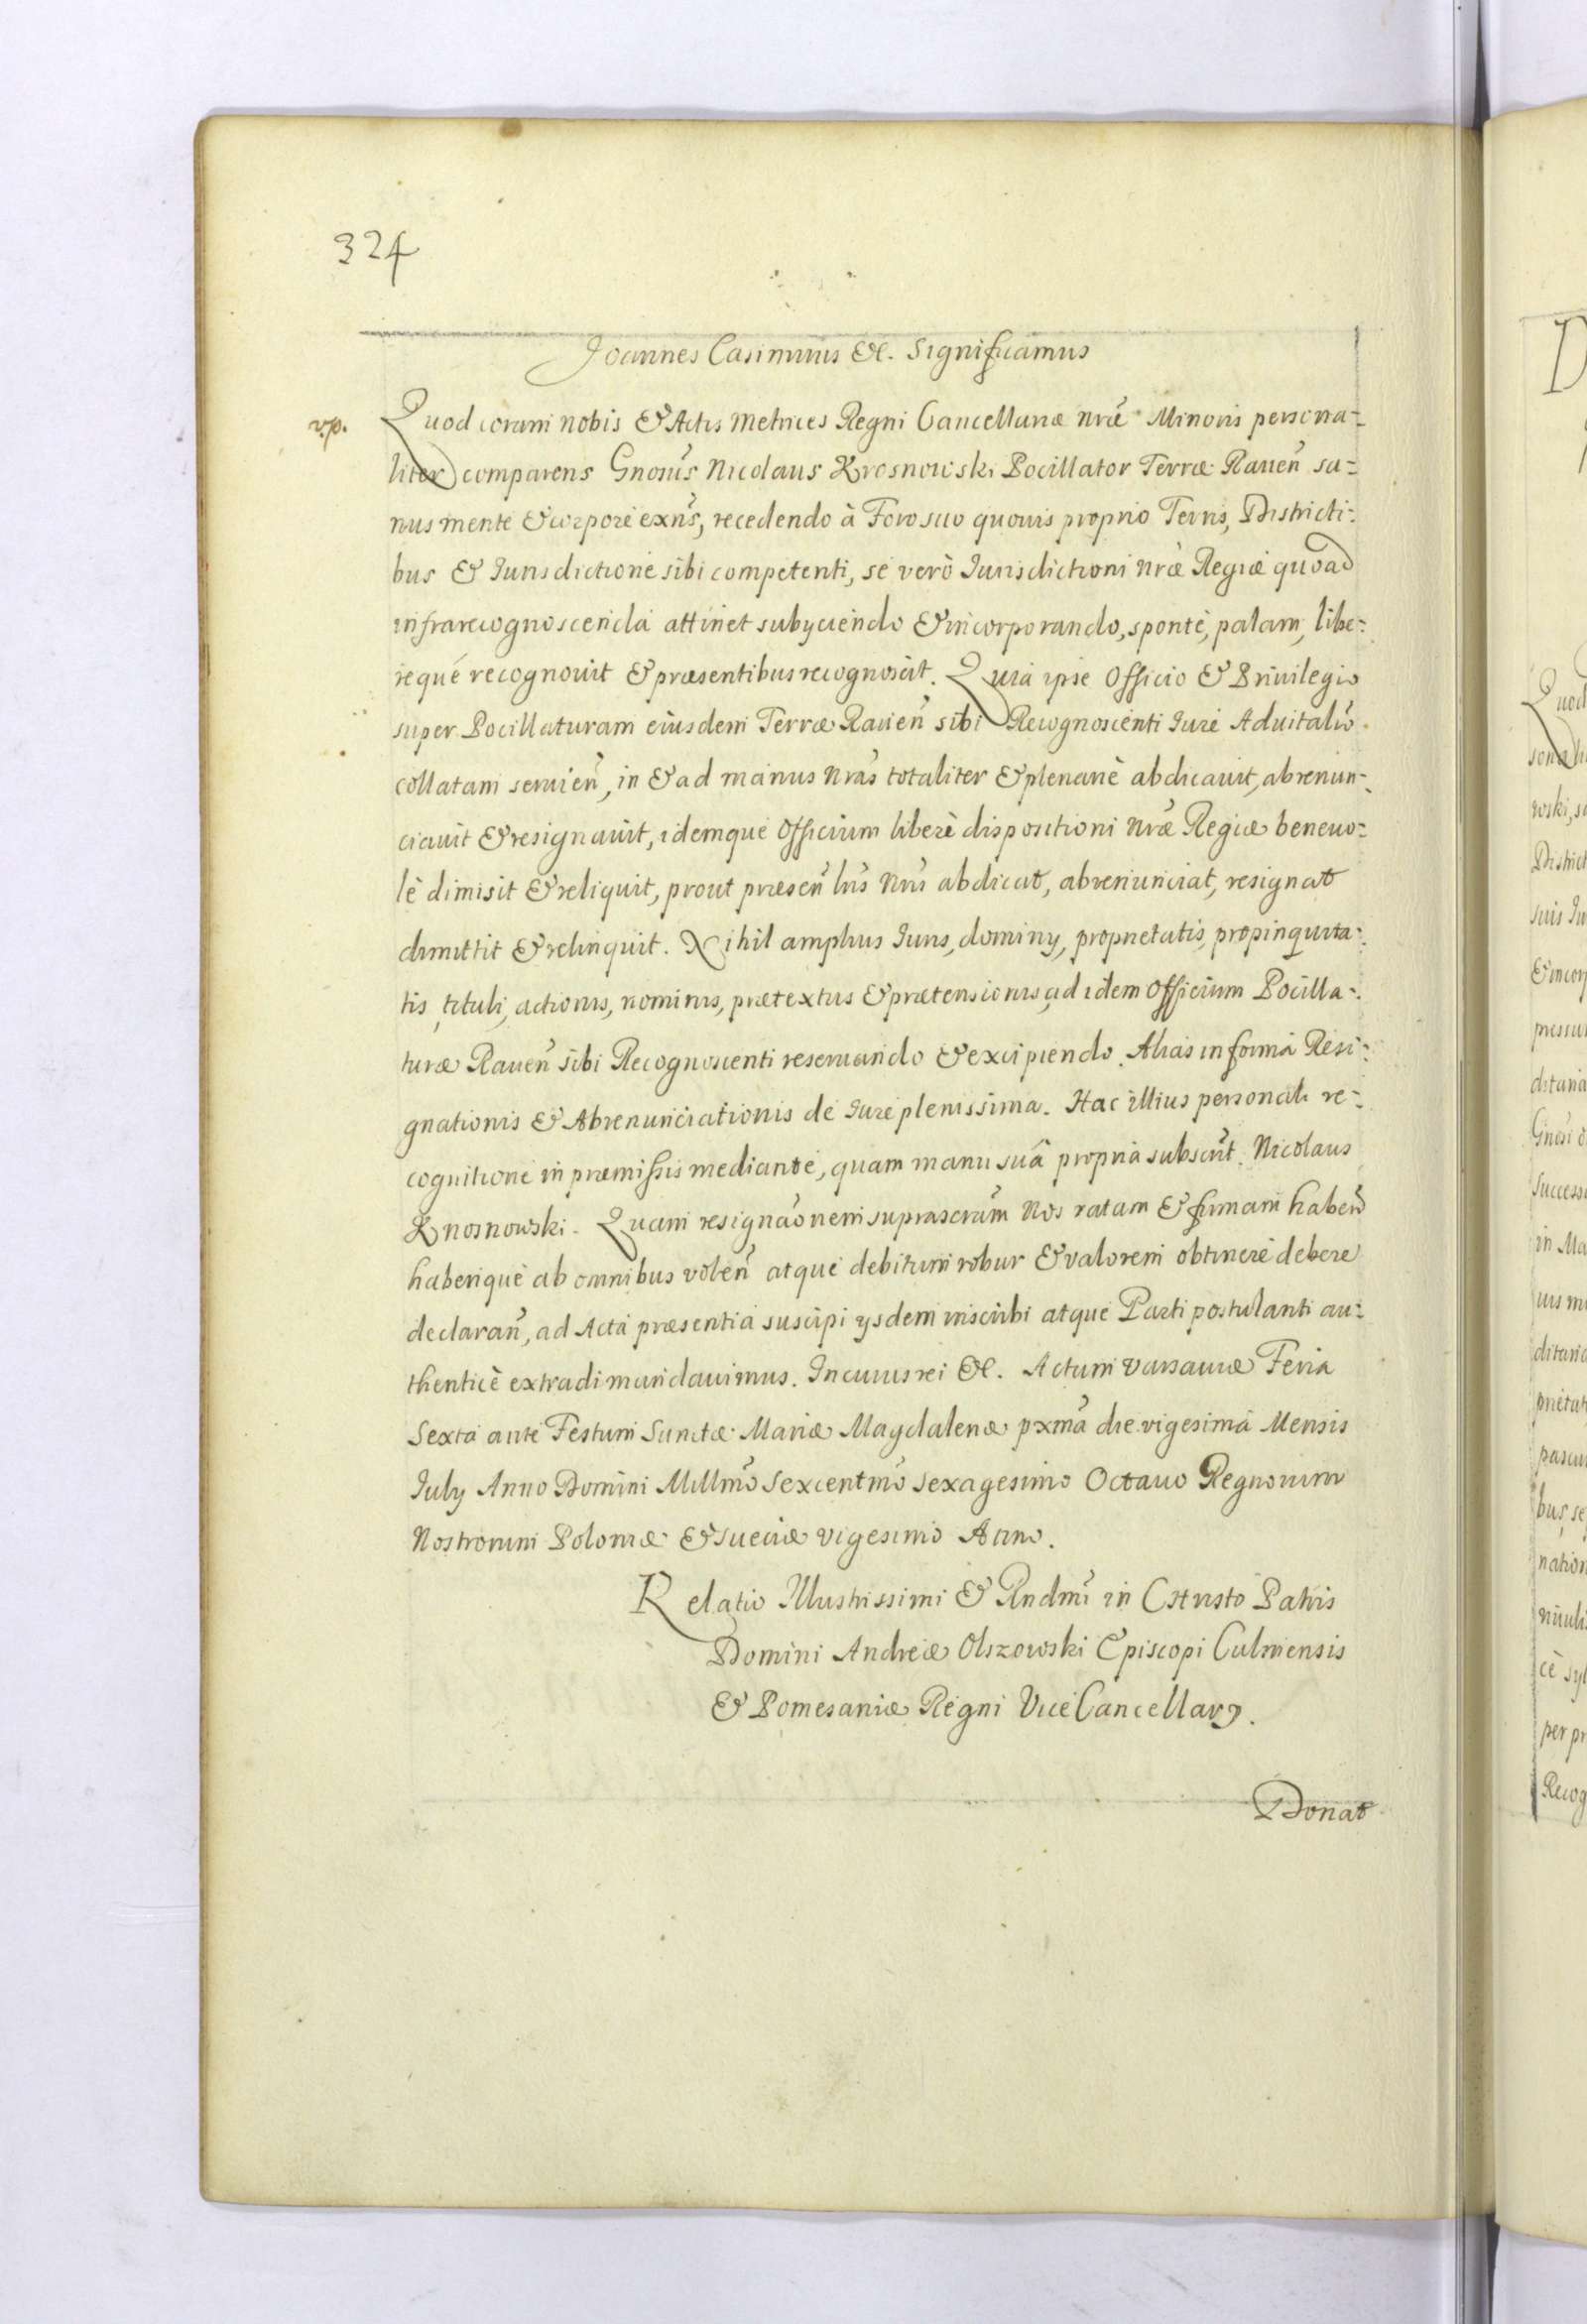 324
Joannes Casimirus &c. Significamus
v.p.
Quod coram nobis & Actis Metrices Regni Cancellariæ nræ Minoris persona-
liter comparens Gnosus Nicolaus Krosnowski Pocillator Terræ Rauen̄ sa-
nus mente & corpore exns, recedendo à Foro suo quouis proprio Terris, Districti-
bus & Jurisdictione sibi competenti, se verò Jurisdictioni nræ Regiæ quoad
infrarecognoscenda attinet subyciendo & incorporando, sponte, palam, libe-
reque recognouit & præsentibus recognoscit. Quia ipse Officio & Priuilegio
super Pocillaturam eiusdem Terræ Rauen̄ sibi Recognoscenti Jure Aduitalio
collatam seruien̄, in & ad manus nras totaliter & plenariè abdicauit, abrenun-
ciauit & resignauit, idemque Officium liberè dispositioni nræ Regiæ beneuo-
lè dimisit & reliquit, prout præsen̄ lris nris abdicat, abrenunciat, resignat
dimittit & relinquit. Nihil amplius Juris, dominy, proprietatis, propinquita-
tis, tituli, actionis, nominis, prætextus & prætensionis, ad idem Officium Pocilla-
turæ Rauen̄ sibi Recognoscenti reseruando & excipiendo. Alias in forma Resi-
gnationis & Abrenunciationis de Jure plenissima. Hac illius personali re-
cognitione in præmissis mediante, quam manu suâ propria subscrit. Nicolaus
Knosnowski. Quam resignaõnem suprascram Nos ratam & firmam haben̄
haberique ab omnibus volen̄ atque debitum robur & valorem obtinere debere
declaran̄, ad Acta præsentia suscipi ysdem inscribi atque Parti postulanti au-
thenticè extradi mandauimus. In cuius rei &c. Actum Varsauiæ Feria
Sexta ante Festum Sanctæ Mariæ Magdalenæ pxma die vigesima Mensis
July Anno Domini Millmo Sexcentmo Sexagesimo Octauo Regnorum
Nostrorum Poloniæ & Sueciæ vigesimo Anno.
Relatio Illustrissimi & Rndmi in CHristo Patris
Domini Andreæ Olszowski Episcopi Culmensis
& Pomesaniæ Regni ViceCancellary.
Donat